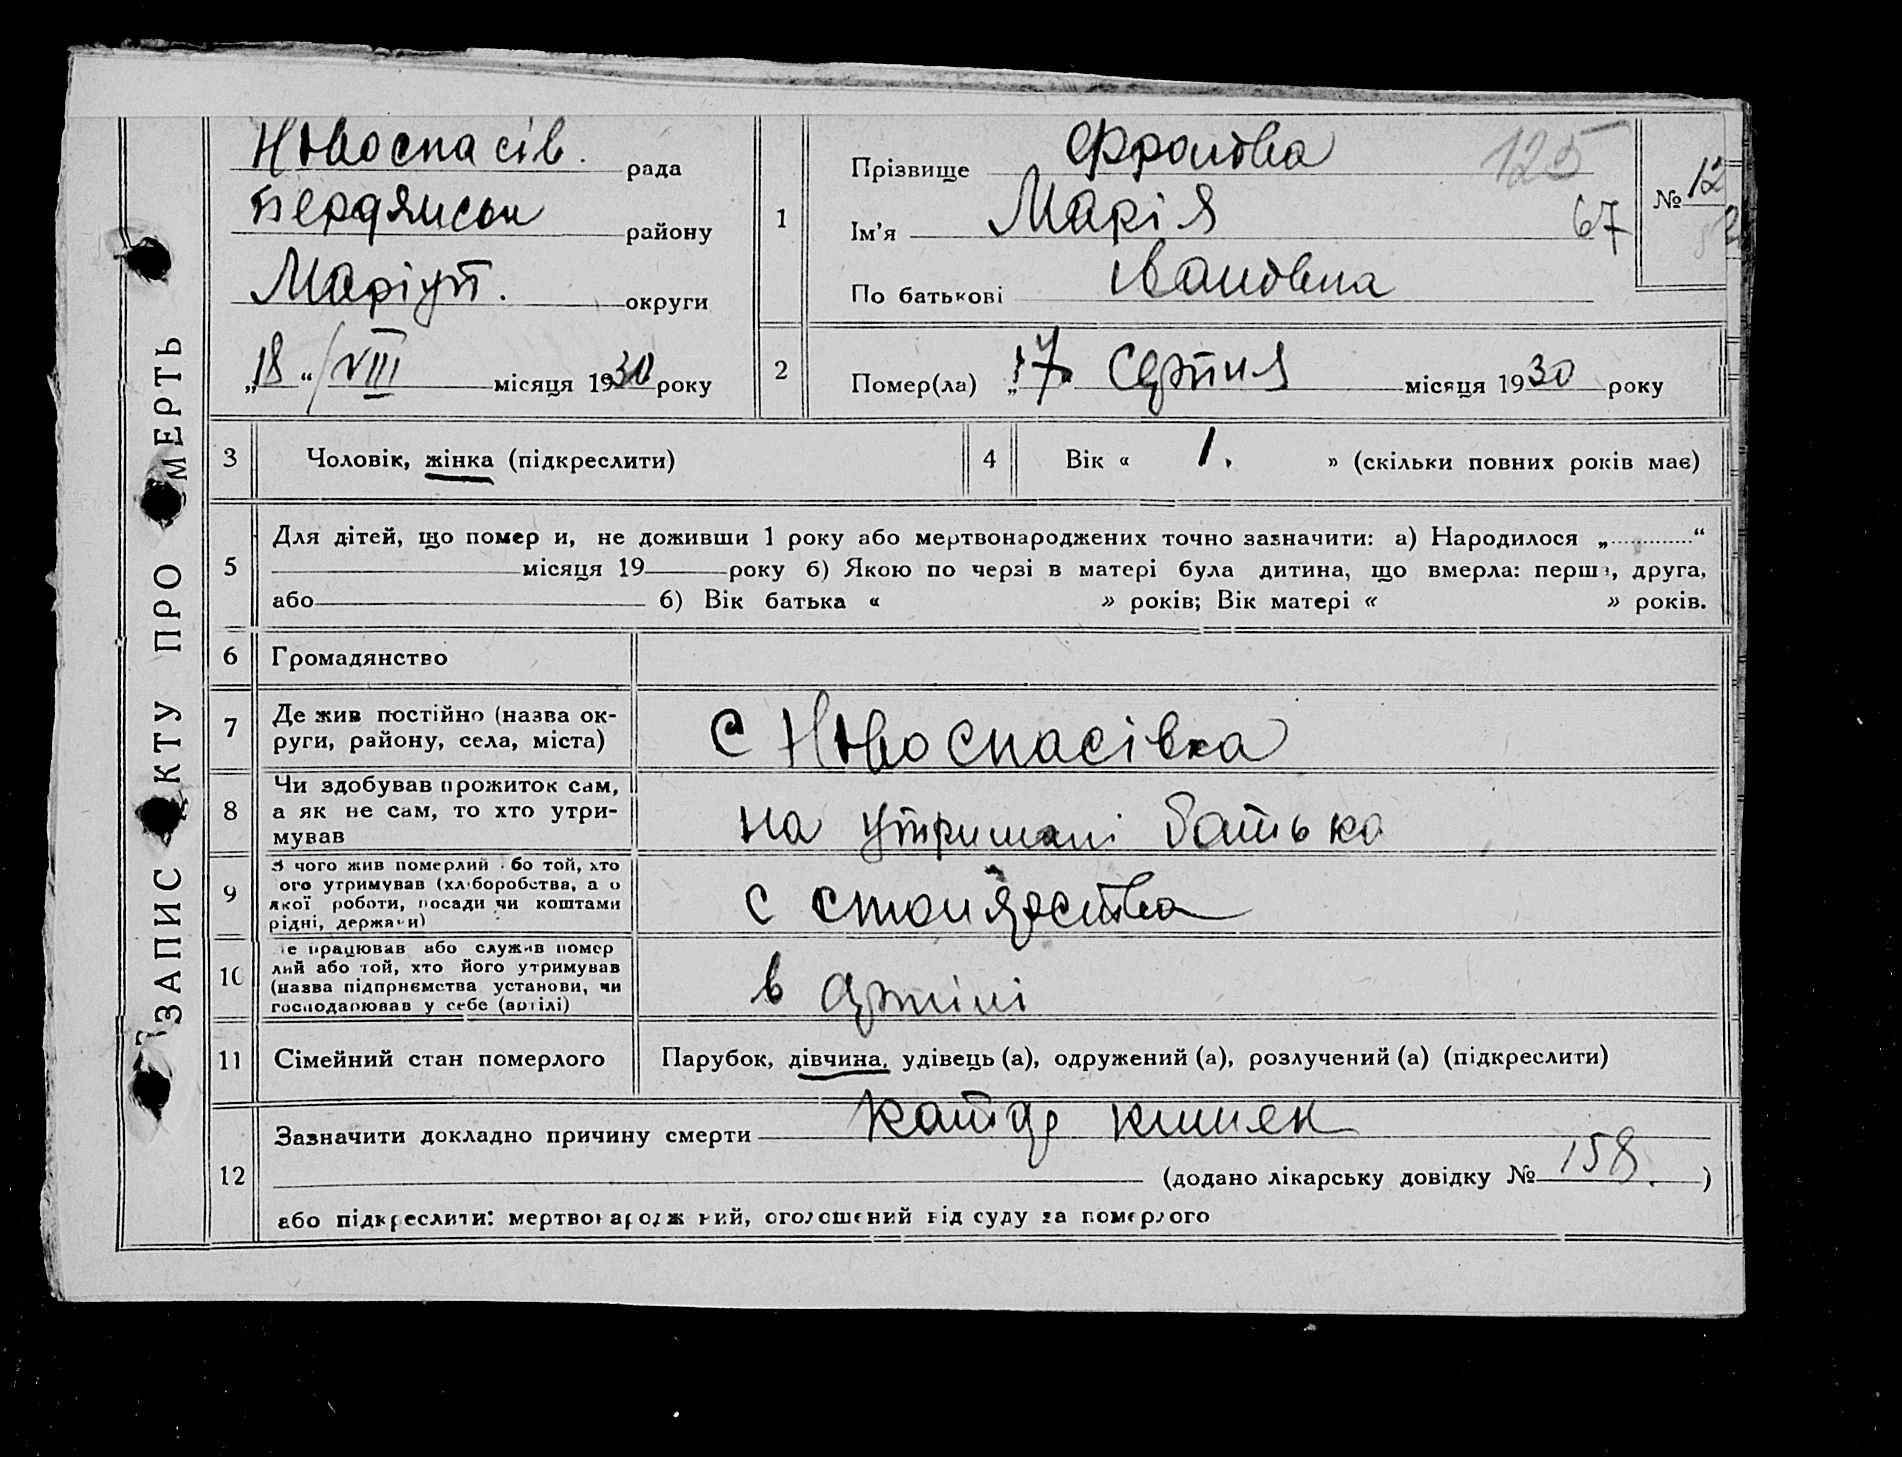 ЗАПИС АКТУ ПРО СМЕРТЬ
Новоспасів. рада
Бердянськ району
Маріуп. округи
„18“ / VIII місяця 1930 року
1
Прізвище Фролова
125
Ім'я Марія
67
По батькові Івановна
№ 12
2
Помер(ла) „17 Серпня місяця 1930 року
3 Чоловік, жінка (підкреслити)
4 Вік « 1. » (скільки повних років має)
5 Для дітей, що помер и, не доживши 1 року або мертвонароджених точно зазначити: а) Народилося „ “
місяця 19 року б) Якою по черзі в матері була дитина, що вмерла: перш, друга,
або б) Вік батька « » років; Вік матері « » років.
6 Громадянство
7 Де жив постійно (назва ок-
руги, району, села, міста)
с Новоспасівка
8 Чи здобував прожиток сам,
а як не сам, то хто утри-
мував
на утримані батька
9 З чого жив померлий бо той, хто
ого утримував (хл боробства, а о
якої роботи, посади чи коштами
рідні, держа и)
с столярства
10 е працював або служив помер
лий або той, хто його утримував
(назва підприємства установи, чи
господарював у себе (артілі)
в артілі
11 Сімейний стан померлого
Парубок, дівчина, удівець (а), одружений (а), розлучений (а) (підкреслити)
12 Зазначити докладно причину смерти катар кишек
(додано лікарську довідку № 158. )
або підкреслити: мертвонароджений, оголошений від суду за померлого